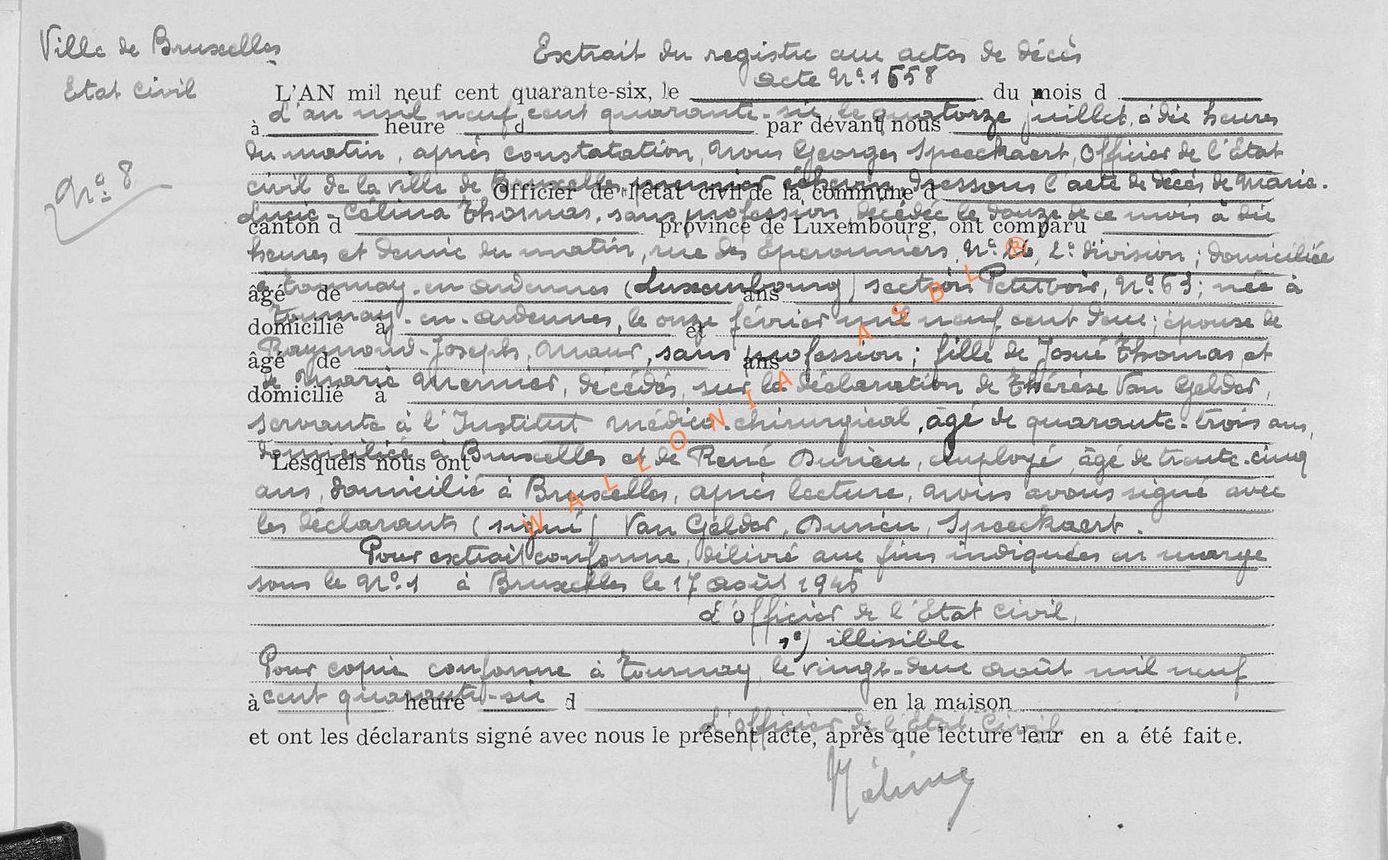 Ville de Bruxelles
Etat Civil
Nº 8
Extrait du registre aux actes de décès
acte Nº 1658
L'AN mil neuf cent quarante-six, le du mois d
L'an mil neuf cent quarante-six, le quatorze juillet, à dix heures
à heure d par devant nous
du matin, après constatation, Nous Georges Speeckaert, Officier de l'Etat
civil de la ville de Bruxelles, premier échevin dressons l'acte de décès de Marie-
Officier de l'état civil de la commune d
Lucie-Célina Thomas, sans profession, décédée le douze de ce mois à dix
canton d province de Luxembourg, ont comparu
heures et demie du matin, rue des Eperonniers, Nº 26, 2e division ; domiciliée
à Tournay-en-Ardennes (Luxembourg) section Petitvoir, Nº 63 ; née à
âgé de ans
Tournay-en-Ardennes, le onze février mil neuf cent deux ; épouse de
domicilié à et
Raymond-Joseph, , sans profession ; fille de Josué Thomas et
âgé de ans
de Marie Mernier, décédés, sur la déclaration de Thérèse Van Gelder,
domicilié à
servante à l'Institut médico-chirurgical, âgé de quarante-trois ans,
domiciliée à Bruxelles et de René Durieu, employé, âgé de trente-cinq
Lesquels nous ont
ans, domicilié à Bruxelles, après lecture, nous avons signé avec
les déclarants (signé) Van Gelder, Durieu, Speeckaert.
Pour extrait conforme, délivré aux fins indiquées en marge
sous le Nº 1 à Bruxelles le 17 août 1946
L'officier de l'Etat civil,
illisible
Pour copie conforme à Tournay, le vingt-deux août mil neuf
cent quarante-six
à heure d en la maison
L'officier de l'Etat Civil
et ont les déclarants signé avec nous le présent acte, après que lecture leur en a été faite.
WALLONIA ASBL ®